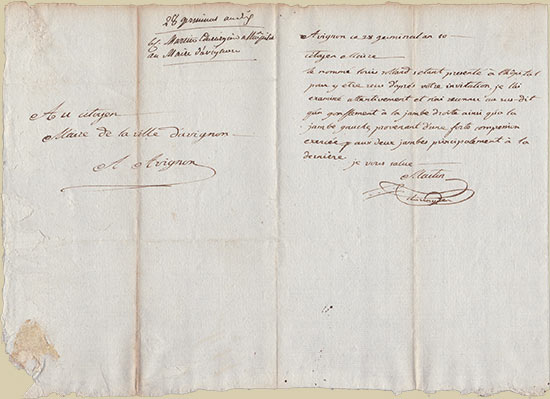 28 germinal an dix
Martin chirurgien
au Maire d'avignon
Au citoyen
Maire de la ville d'avignon
A Avignon
Avignon ce 28 germinal an 10
citoyen Maire
le nommé louis rolland s'étant presenté à l'hôpital
pour y être reçu d'après votre invitation, je l'ai
examiné attentivement et n'ai reconnu au sus-dit
qu'un gonflement à la jambe droite ainsi que la
jambe gauche, provenant d'une forte compression
exercée aux deux jambes principalement à la
dernière
je vous salue
Martin
chirurgien